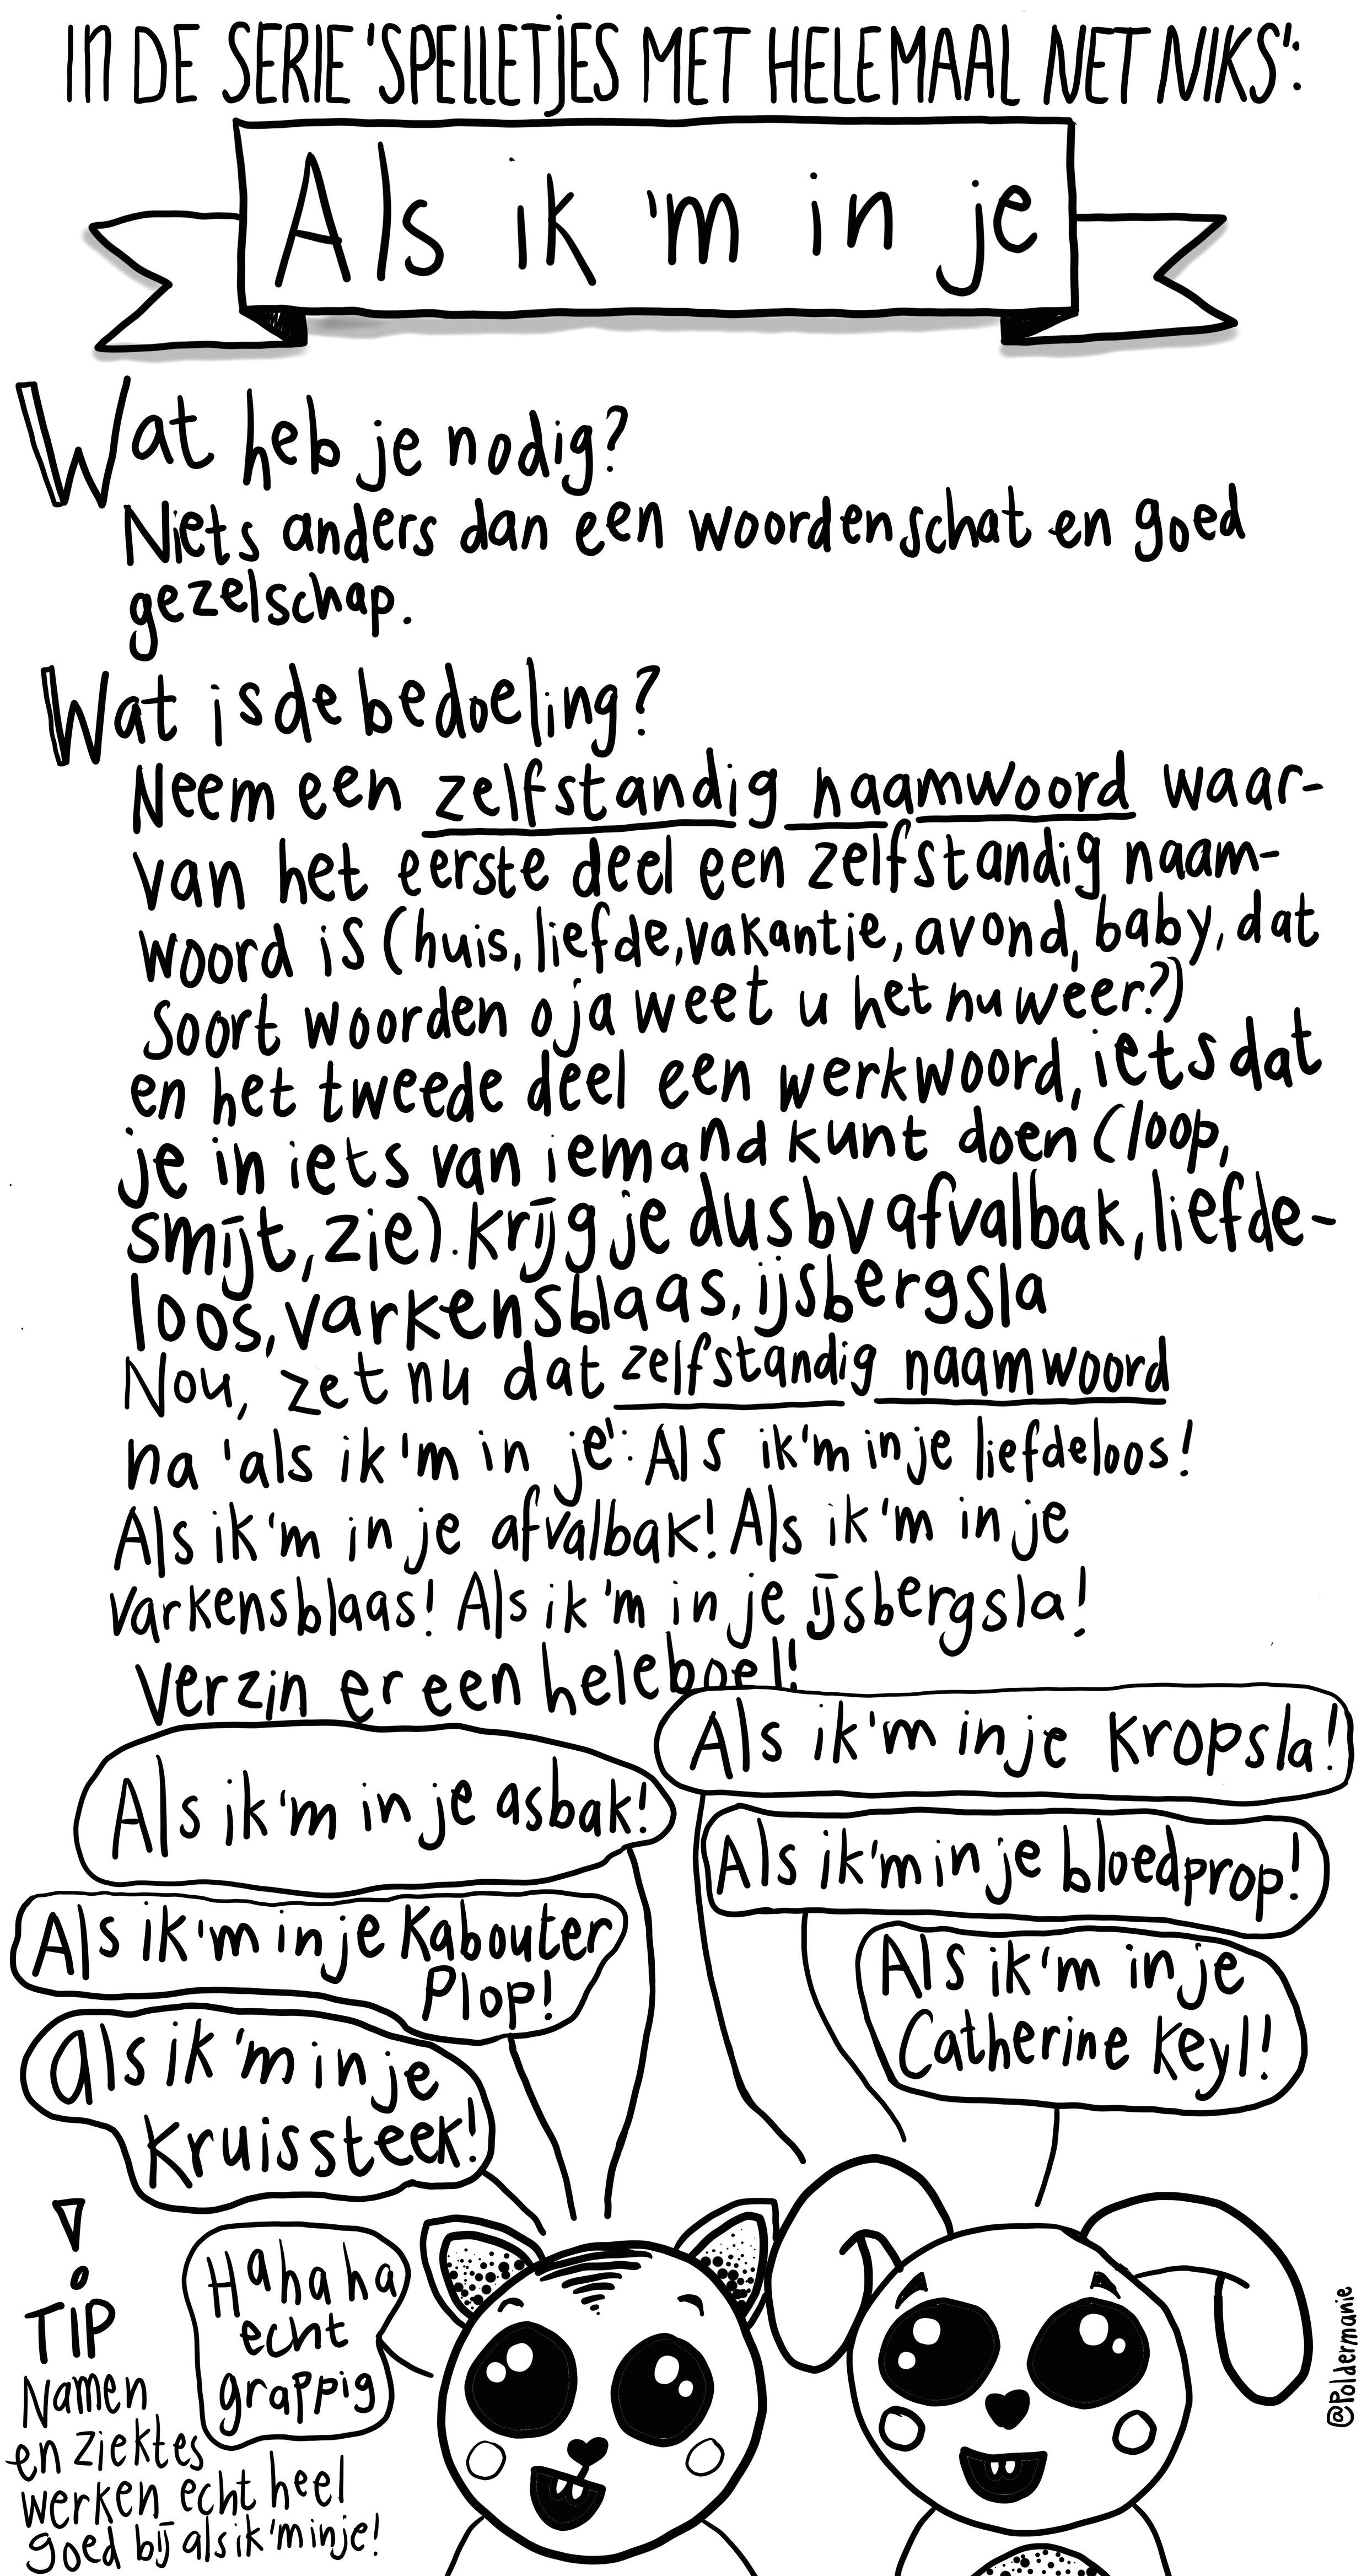 IN DE SERIE 'SPELLETJES MET HELEMAAL NET NIKS':
Als ik 'm in je
Wat heb je nodig?
Niets anders dan een woordenschat en goed
gezelschap.
Wat is de bedoeling?
Neem een zelfstandig naamwoord waar-
van het eerste deel een zelfstandig naam-
woord is (huis, liefde, vakantie, avond, baby, dat
soort woorden o ja weet u het nu weer?)
en het tweede deel een werkwoord, iets dat
je in iets van iemand kunt doen (loop,
smijt, zie). Krijg je dus bv afvalbak, liefde-
loos, varkensblaas, ijsbergsla
Nou, zet nu dat zelfstandig naamwoord
na 'als ik 'm in je': Als ik 'm in je liefdeloos!
Als ik 'm in je afvalbak! Als ik 'm in je
varkensblaas! Als ik 'm in je ijsbergsla!
Verzin er een heleboel!
Als ik 'm in je kropsla!
Als ik 'm in je asbak!
Als ik 'm in je bloedprop!
Als ik 'm in je Kabouter
Plop!
Als ik 'm in je
Catherine Keyl!
Als ik 'm in je
kruissteek!
!
TIP
Namen
en ziektes
werken echt heel
goed bij als ik 'm in je!
Hahaha
echt
grappig
@Poldermanie